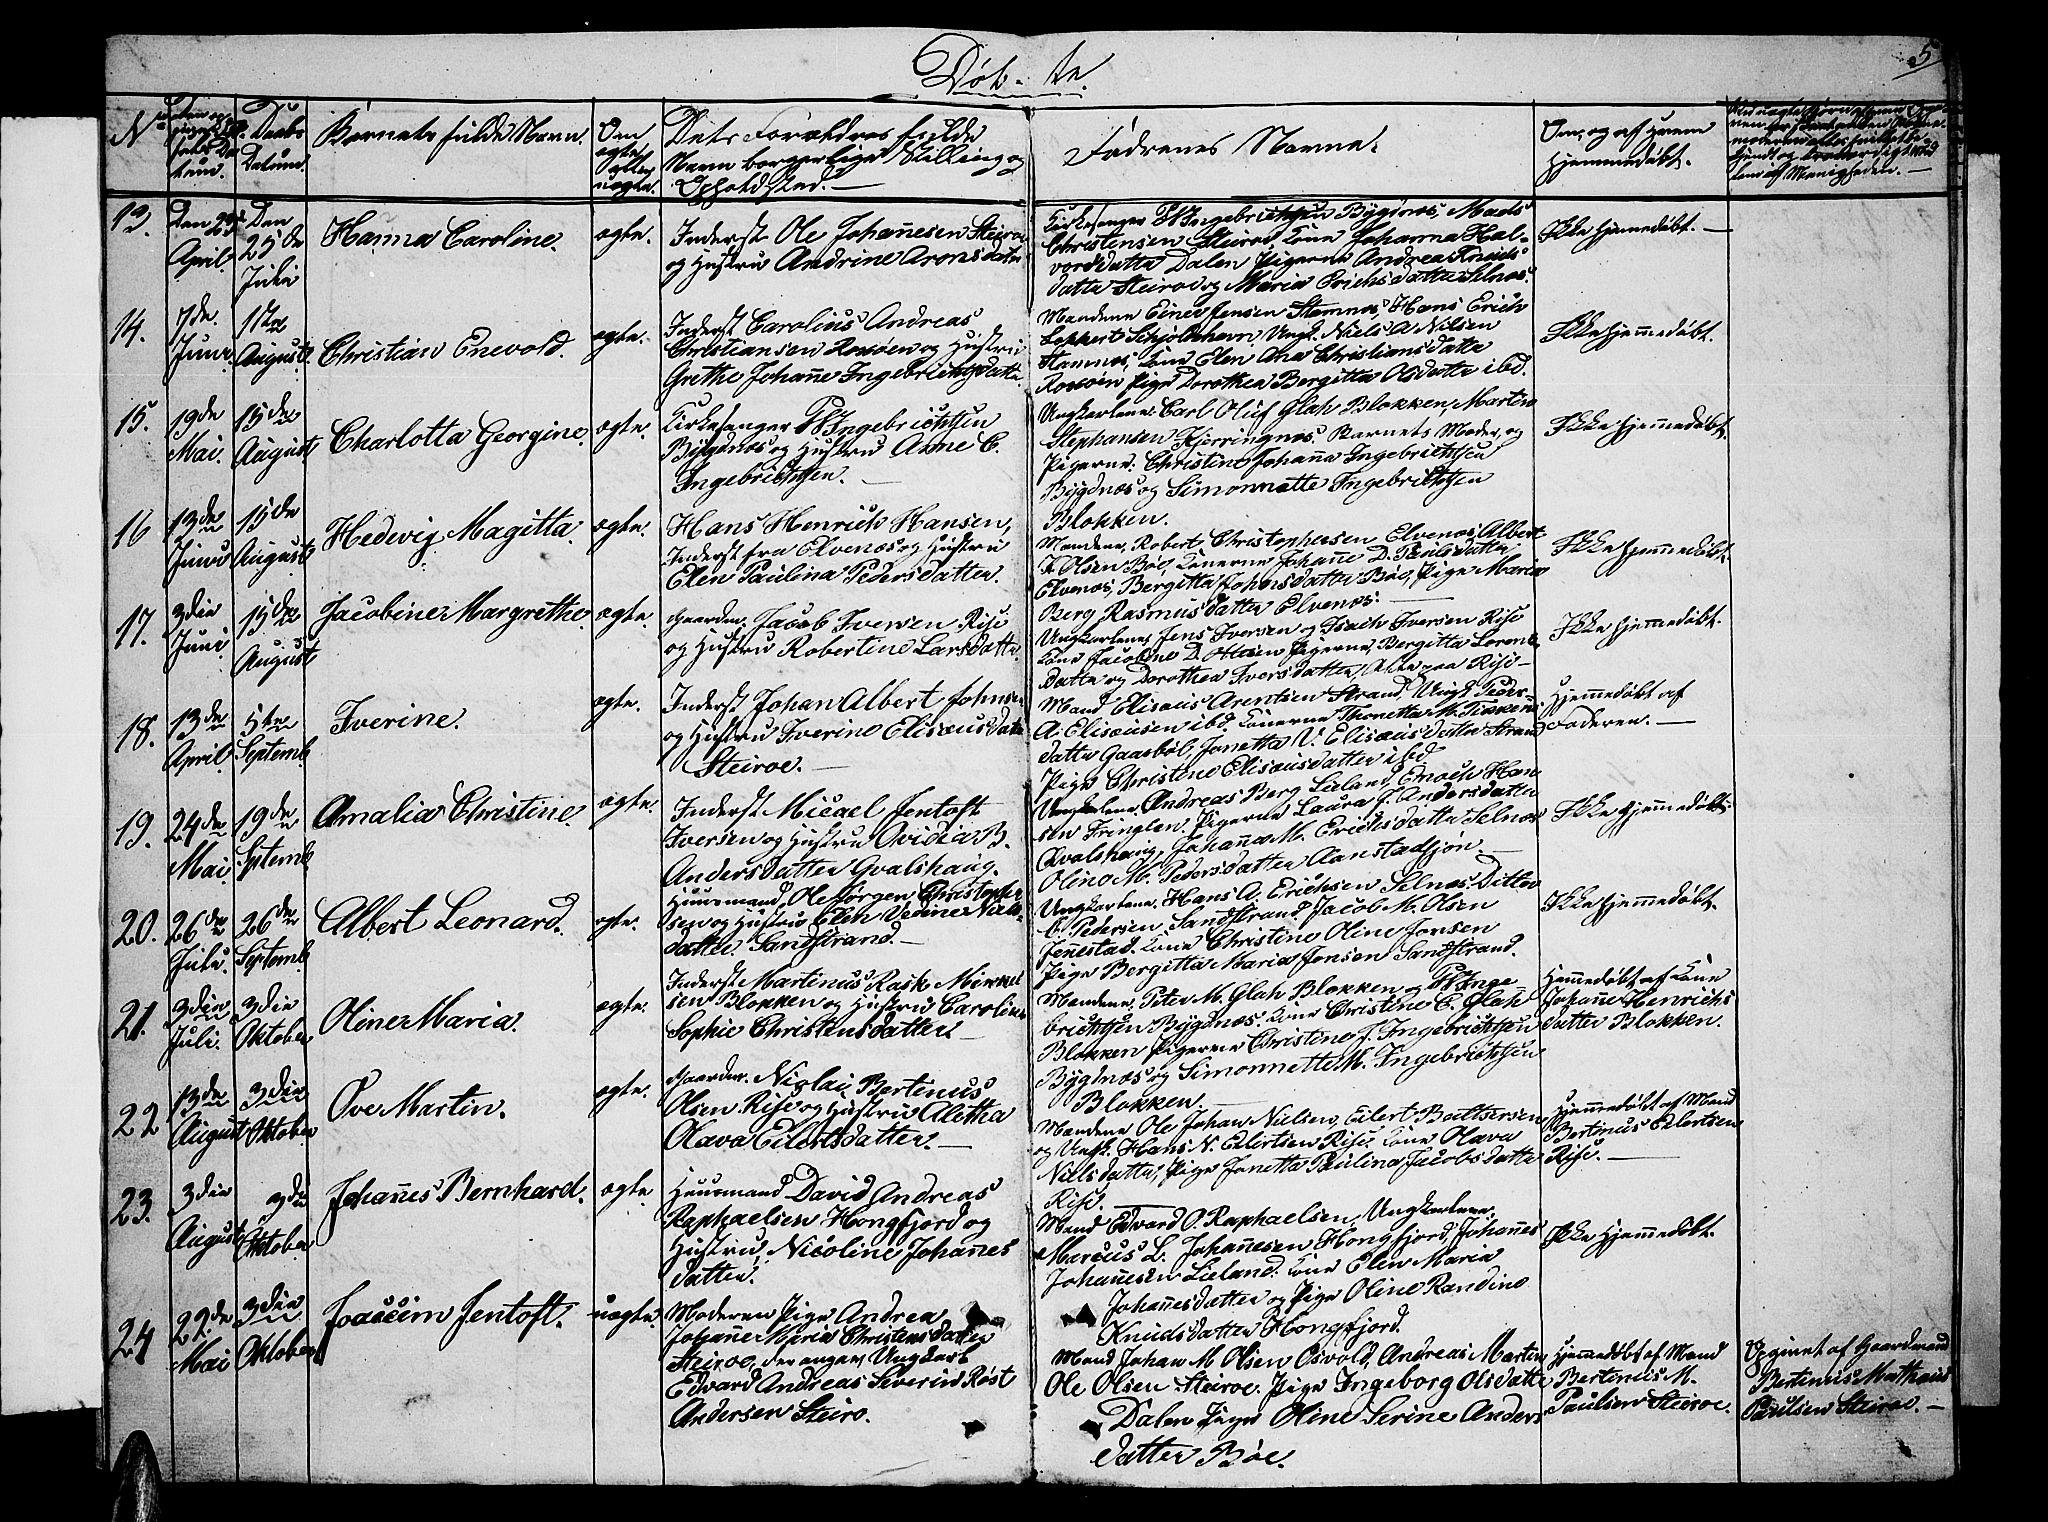 Døb-te.
5
No
Daabs
Datum.
Barnets fulde Navn.
Om
ægte
eller
uægte.
Dets Forældres fulde
Navn borgerlige Stilling og
Opholdsted.
Fadrenes Navne.
Om, og af hvem
hjemmedøbt.
13.
Den 23de
April.
Den
25de
Julii
Hanna Caroline.
ægte.
Inderst Ole Johannesen Steiroe
og Hustru Andrine Aronsdatter
Kirkesanger P W Ingebrichtsen Bygdnæs, Mads
Christensen Steiroe, Kone Johanna Hal-
vordsdatter Dalen, Pigerne Andrea Knuds
datter Steiroe og Maria Erichsdatter Selnæs.
Ikke hjemmedøbt.
14.
7de
Juni
1te
August
Christian Enevold.
ægte.
Inderst Carolius Andreas
Christiansen Roxøen og Hustru
Grethe Johanne Ingebrigtsdatter
Mændene Einer Jensen Stamnæs, Hans Erich
Loppert Schjoldehavn, Ungk. Niels A. Nilsen
Stamnæs, Kone Elen Ana Christiansdatter
Roxøen Pige Dorothea Bergitta Olsdatter ibd.
Ikke hjemmedøbt.
15.
19de
Mai.
15de
August
Charlotta Georgine.
ægte.
Kirkesanger P W Ingebrichtsen
Bygdnæs og Hustru Anne C.
Ingebrichtsen.
Ungkarlene Carl Oluf Glah Blokken, Martin
Stephansen Kjerringnæs. Barnets Moder, og
Pigerne: Christine Johanna Ingebrichtsen
Bygdnæs og Simonnette Ingebrichtsen
Blokken.
Ikke hjemmedøbt.
16
13de
Juni
15de
August
Hedevig Magitta.
ægte.
Hans Henrich Hansen,
Inderst fra Elvenæs og Hustru
Elen Paulina Pedersdatter.
Mændene, Robert Christophersen Elvenæs, Albert
K Olsen Bøe, Konerne Johanne D. Poulsdatter
Elvenæs, Bergitta Johnsdatter Bøe, Pige Maria
Berg Rasmusdatter Elvenæs.
Ikke hjemmedøbt.
17.
3die
Juni
15de
August
Jacobine Margrethe.
ægte.
Gaardm. Jacob Iversen Rise
og Hustru Robertine Larsdatter.
Ungkarlene Jens Iversen og Isach Iversen Rise
Kone Jacobine D. Ottesen Pigerne, Bergitta Lorents
datter og Dorothea Iversdatter, Alle paa Rise
Ikke hjemmedøbt.
18.
13de
April
5te
Septemb.
Iverine.
ægte.
Inderst Johan Albert Johnsen
og Hustru Iverine Elisæusdatter
Steiroe.
Mand Elisæus Arentsen Strand, Ungk. Peder
A. Elisæusen ibd. Konerne Thonetta M.
datter Gaasbøl, Janetta V. Elisæusdatter Strand
Pige Christine Elisæusdatter ibd
Hjemmedøbt af
Faderen.
19.
24de
Mai.
19de
Septemb
Amalia Christine.
ægte.
Inderst Micael Jentoft
Iversen og Hustru Ovidia B.
Andersdatter Qvalshaug.
Ungkarlene Andreas Berg Lieland, Enoch Han
sen Fringlen. Pigerne Laura J. Andersdatter
Qvalshaug, Johanna M. Erichsdatter Selnæs
Olina M. Pedersdatter Aanstadsjøn.
Ikke hjemmedøbt.
20.
26de
Julii.
26de
Septemb.
Albert Leonard.
ægte.
Huusmand Ole Jørgen Christopher
sen og Hustru Elen Vedine Niels
datter. Sandstrand.
Ungkarlene, Hans A. Erichsen Selnæs, Ditlev
C. Pedersen Sandstrand. Jacob M. Olsen
Jennestad. Kone Christine Oline Jonsen
Pige Bergitta Maria Jonsen Sandstrand.
Ikke hjemmedøbt.
21.
3die
Juli.
3die
Oktober
Oline Maria.
ægte.
Inderst Martinus Rask Mikkel
sen Blokken og Hustru Caroline
Sophie Christensdatter.
Mændene, Peter M. Glah Blokken og P W Inge-
brichtsen Bygdnæs. Kone Christine C. Glah
Blokken Pigerne Christine J. Ingebrichtsen
Bygdnæs og Simonnette M. Ingebrichtsen
Blokken.
Hjemmedøbt af Kone
Johanne Henrichs
datter Blokken.
22
13de
August
3die
Oktober
Ove Martin.
ægte.
Gaardm. Nicolai Bertinus
Olsen Rise og Hustru Alethea
Olava Eilertsdatter.
Mændene Ole Johan Nielsen, Eilert Baltsersen
og Ungk. Hans N. Eilertsen Rise, Kone Olava
Nielsdatter, Pige Janetta Paulina Jacobsdatter
Rise.
Hjemmedøbt af Mand
Bertinus Eilertsen
Rise.
23.
3die
August
3die
Oktober
Johannes Bernhard.
ægte.
Huusmand David Andreas
Raphaelsen Hongfjord og
Hustru, Nicoline Johannes
datter.
Mand Edvard O. Raphaelsen, Ungkarlene,
Marcus L. Johannesen Hongfjord, Johannes
Johannesen Lieland. Kone Elen Maria
Johannesdatter og Pige Oline Randine
Knudsdatter Hongfjord.
Ikke hjemmedøbt.
24
22de
Mai
3die
Oktober
Joachim Jentoft.
uægte.
Moderen Pige Andrea
Johanne Maria Christensdatter
Steiroe, der angav Ungkarl
Edvard Andreas Severin Røst
Andersen Steiro.
Mand Johan M Olsen Osvold, Andreas Martin
Ole Olsen Steiroe. Pige Ingeborg Olsdatter
Dalen Pige Oline Serine Anders
datter Bøe.
Hjemmedøbt af Mand
Bertinus M.
Paulsen Steiroe.
Opgivet af Gaardmand
Bertinus Mathæus
Paulsen Steiroe.